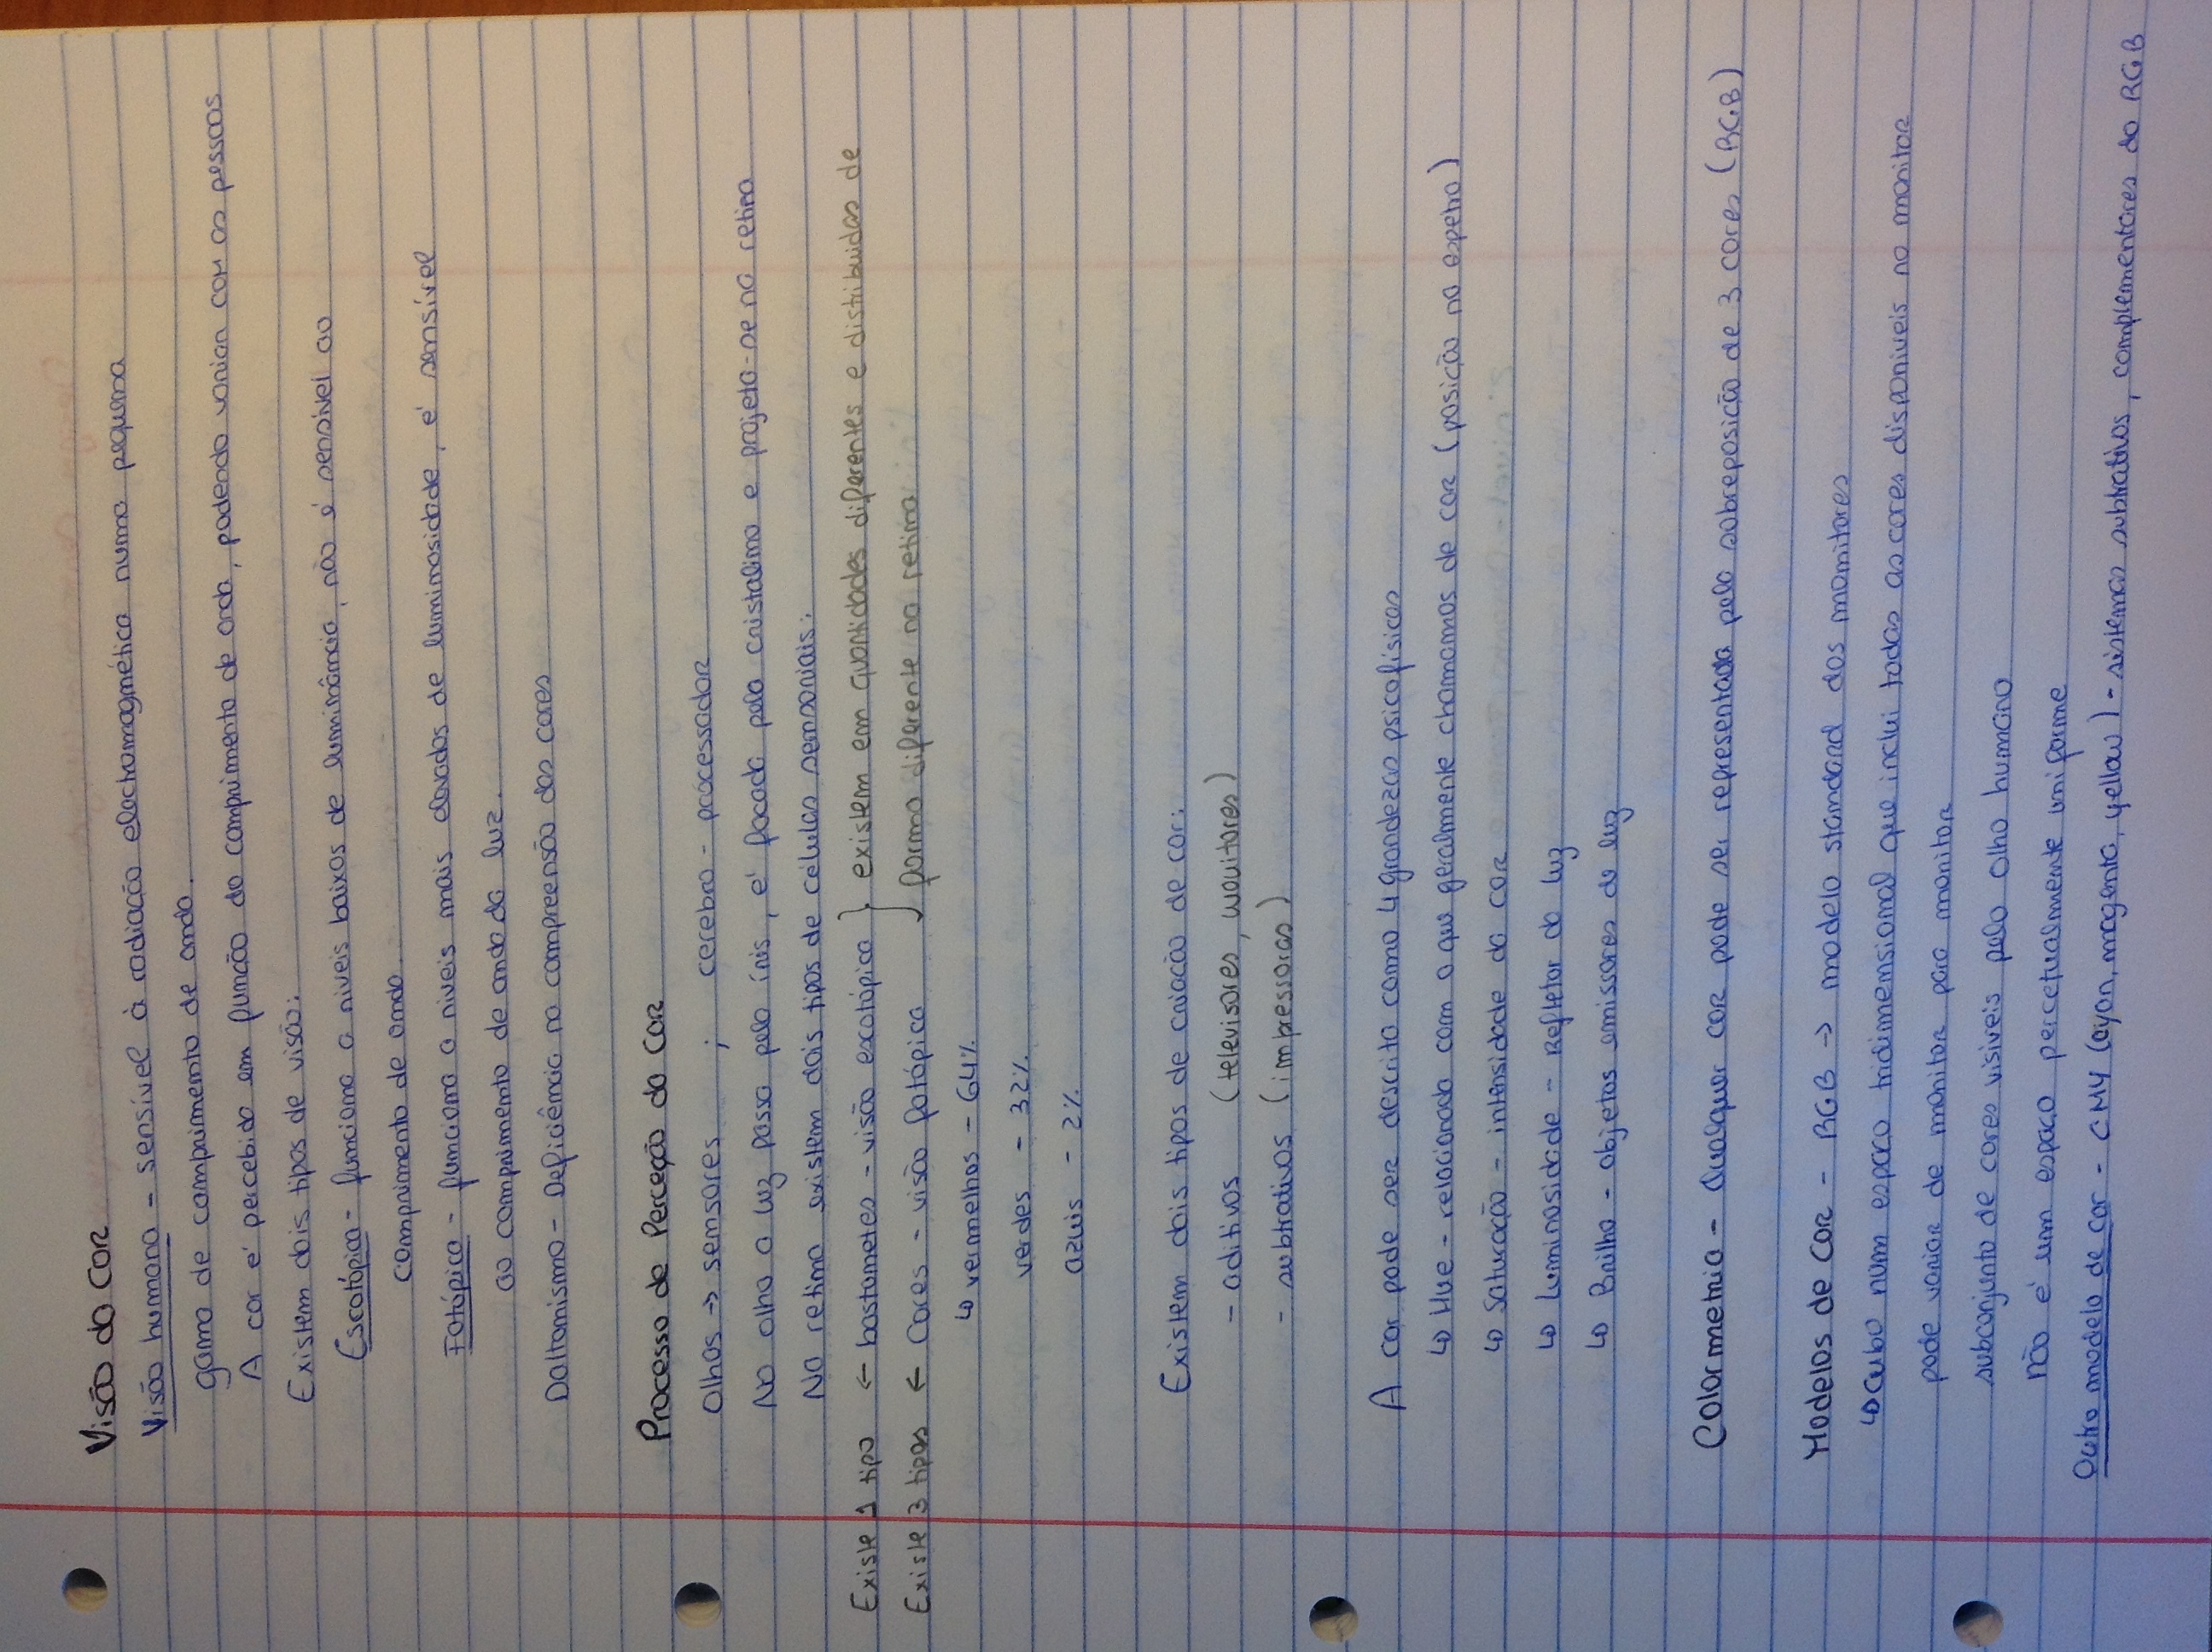 Visão da COR
Visão humana - sensível à radiação electromagnética numa pequena
gama de comprimento de onda.
A cor é percebida em função do comprimento de onda, podendo variar com as pessoas
Existem dois tipos de visão:
Escotópica - funciona a niveis baixos de luminância, não é sensível ao
comprimento de onda.
Fotópica - funciona a niveis mais elevados de luminosidade, é sensível
ao comprimento de onda da luz.
Daltonismo - Deficiência na compreensão das cores
Processo de Perceção da COR
Olhos → sensores ; cerebro - processador
No olho a luz passa pela íris, é focada pelo cristalino e projeta-se na retina
Na retina existem dois tipos de células sensoriais:
Existe 1 tipo ← bastonetes - visão escotópica } existem em quantidades diferentes e distribuidas de
Existe 3 tipos ← Cores - visão fotópica forma diferente na retina
↳ vermelhos - 64%
verdes - 32%
azuis - 2%
Existem dois tipos de criação de cor:
- aditivos (televisores, monitores)
- subtrativos (impressoras)
A cor pode ser descrita como 4 grandezas psicofísicas
↳ Hue - relacionada com o que geralmente chamamos de cor (posição no espetro)
↳ Saturação - intensidade da COR
↳ Luminosidade - Refletor da luz
↳ Brilho - objetos emissores de luz
Colormetria - Qualquer cor pode ser representada pela sobreposição de 3 cores (RGB)
Modelos de COR - RGB → modelo standard dos monitores
↳ cubo num espaço tridimensional que inclui todas as cores disponiveis no monitor
pode variar de monitor para monitor
subconjunto de cores visiveis pelo olho humano
não é um espaço percetualmente uniforme
Outro modelo de cor - CMY (cyan, magenta, yellow) - sistemas subtrativos, complementares do RGB